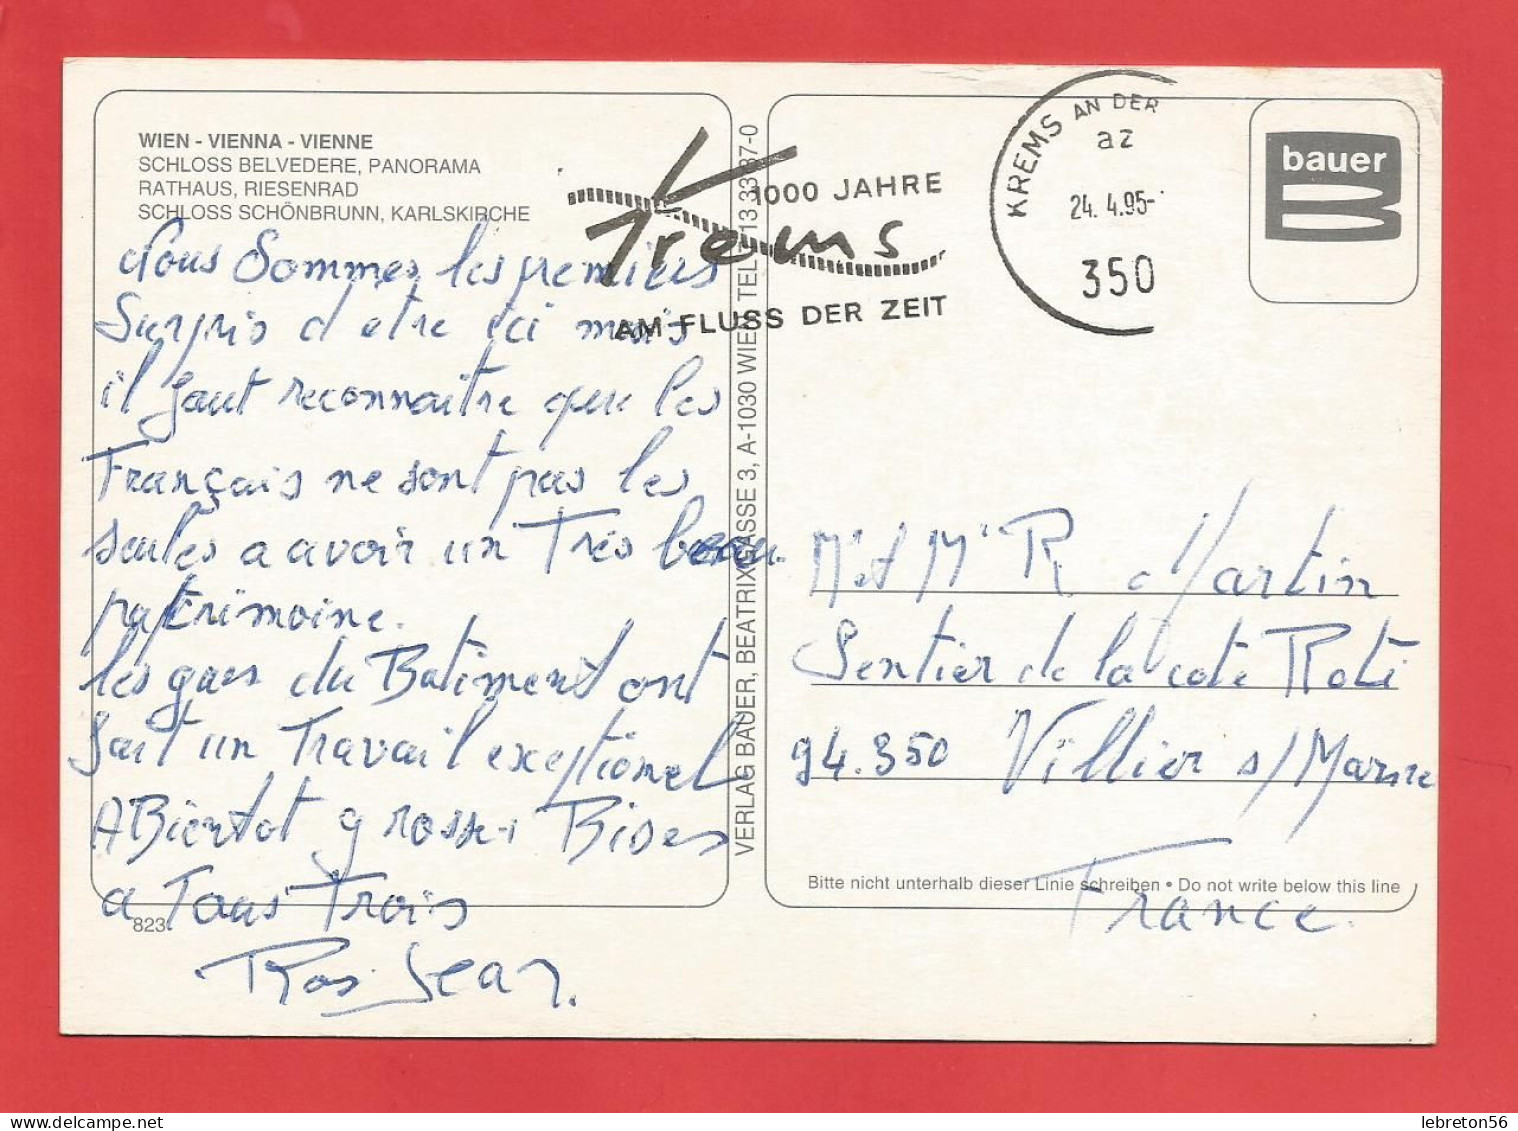 WIEN - VIENNA - VIENNE
SCHLOSS BELVEDERE, PANORAMA
RATHAUS, RIESENRAD
SCHLOSS SCHÖNBRUNN, KARLSKIRCHE
Nous Sommes les premiers
Surpris d etre ici mais
il faut reconnaitre que les
Français ne sont pas les
seules a avoir un Très beau
patrimoine.
les gars du Batiment ont
fait un Travail exceptionel
A Bientot grosses Bises
a Tous Trois
Jean.
823
VERLAG BAUER, BEATRIXGASSE 3, A-1030 WIEN, TEL. 713 33 87-0
1000 JAHRE
Krems
AM FLUSS DER ZEIT
KREMS AN DER
az
24. 4.95-
350
bauer
Mr et Me R Martin
Sentier de la cote Roti
94.350 Villier s/Marne
France.
Bitte nicht unterhalb dieser Linie schreiben • Do not write below this line
lebreton56